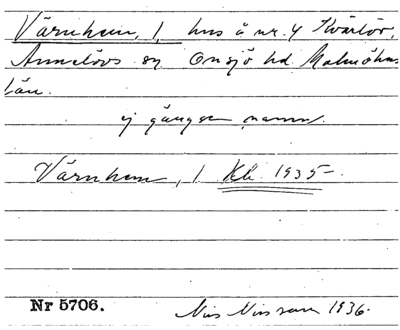 Värnhem, 1, hus å nr. 4 Kvärlöv,
Annelövs sn Onsjö hd. Malmöhus
län.
ej gängse namn.
Värnhem, 1 Kh. 1935-
Nr 5706.
Nils Nilsson 1936.